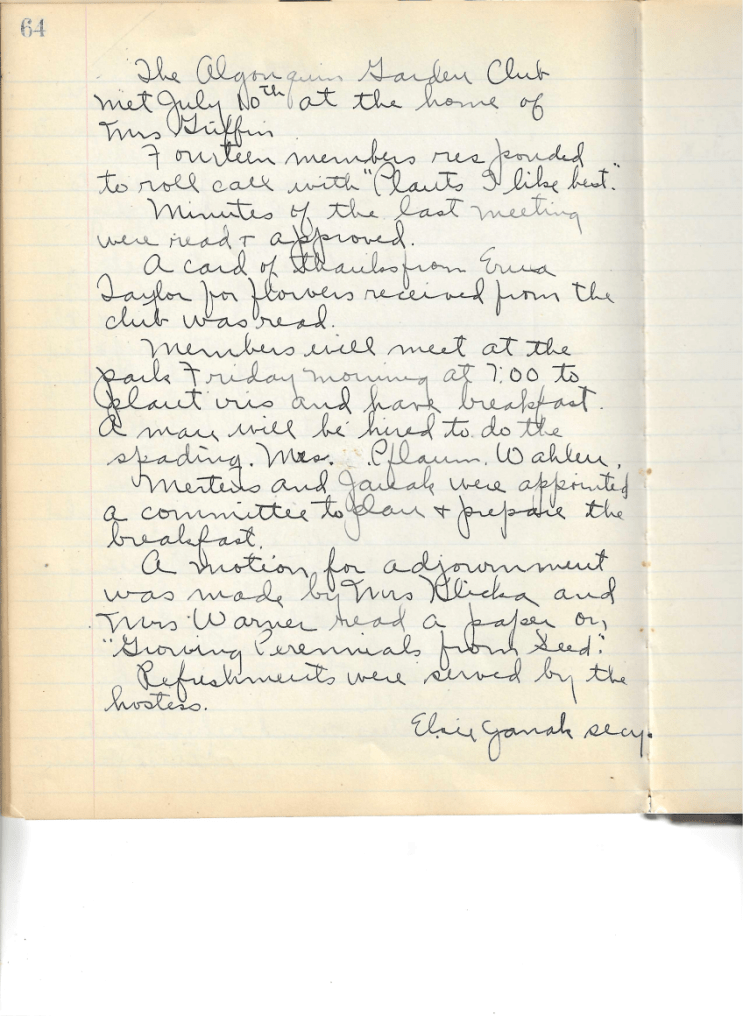 64
The Algonquin Garden Club
met July 10th at the home of
Mrs Griffin
Fourteen members responded
to roll call with "Plants I like best."
Minutes of the last meeting
were read + approved.
A card of thanks from Erma
Taylor for flowers received from the
club was read.
Members will meet at the
park Friday morning at 7:00 to
plant iris and have breakfast.
A man will be hired to do the
spading. Mrs. Pflaum, Wahlen,
Mertens and Janak were appointed
a committee to plan + prepare the
breakfast.
A motion for adjournment
was made by Mrs Klicka and
Mrs Warner read a paper on
"Growing Perennials from Seed."
Refreshments were served by the
hostess.
Elsie Janak secy.